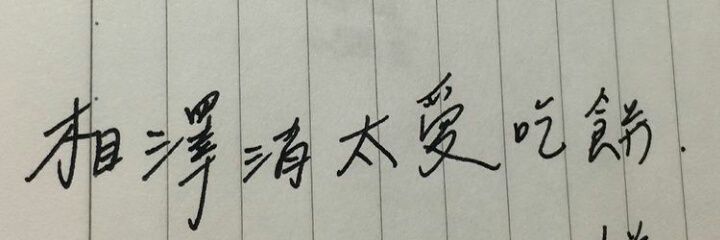 相澤消太愛吃餅.